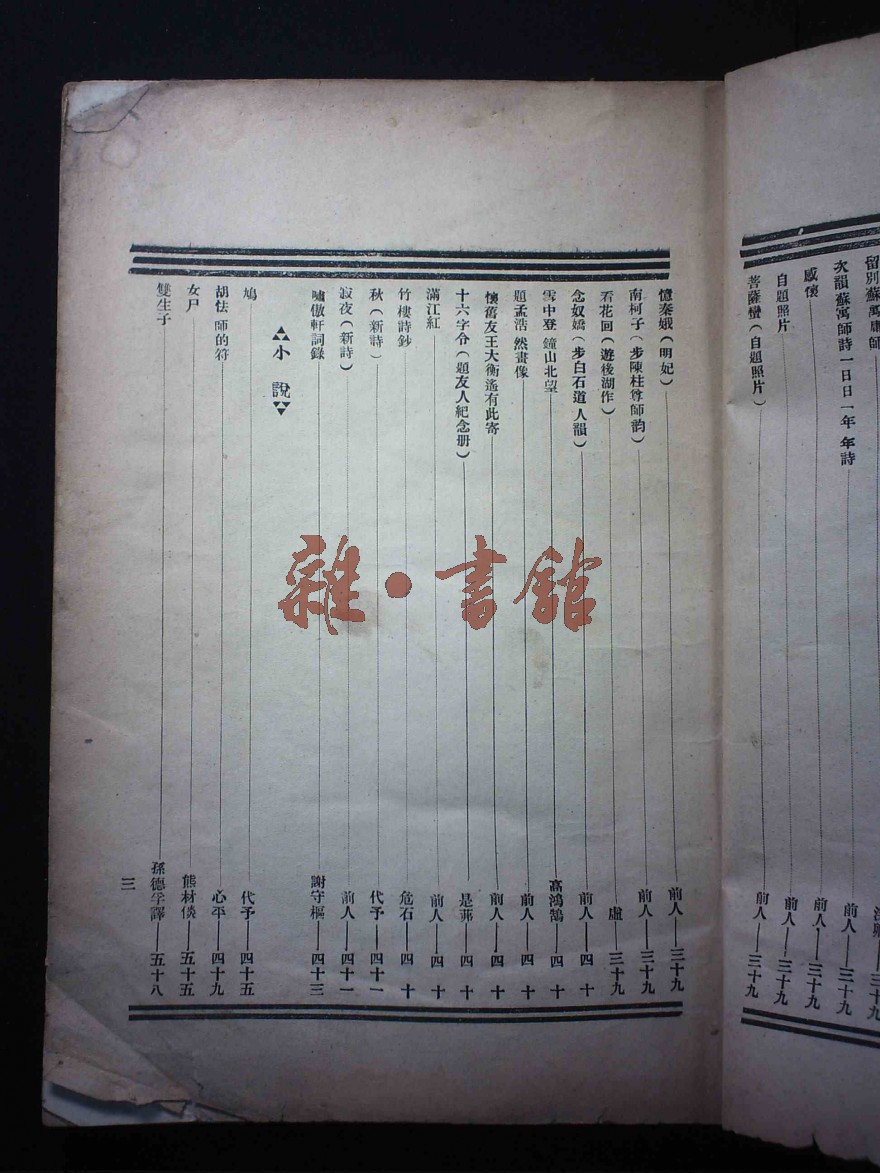 留別蘇寓庸師
次韻蘇寓師詩一日日一年年詩 前人 三十九
感懷 前人 三十九
自題照片 前人 三十九
菩薩蠻(自題照片) 前人 三十九
憶秦娥(明妃) 前人 三十九
南柯子(步陳柱尊師韵) 前人 三十九
看花回(遊後湖作) 虛 三十九
念奴嬌(步白石道人韻) 前人 四十
雪中登鐘山北望 高鴻鵠 四十
題孟浩然畫像 前人 四十
懷舊友王大衡遙有此寄 前人 四十
十六字令(題友人紀念册) 是茆 四十
滿江紅 前人 四十
竹樓詩鈔 危石 四十
秋(新詩) 代予 四十一
寂夜(新詩) 前人 四十一
嘯傲軒詞錄 謝守樞 四十三
小說
鳩 代予 四十五
胡怯師的符 心平 四十九
女尸 熊材倓 五十五
雙生子 孫德孚譯 五十八
三
雜·書館